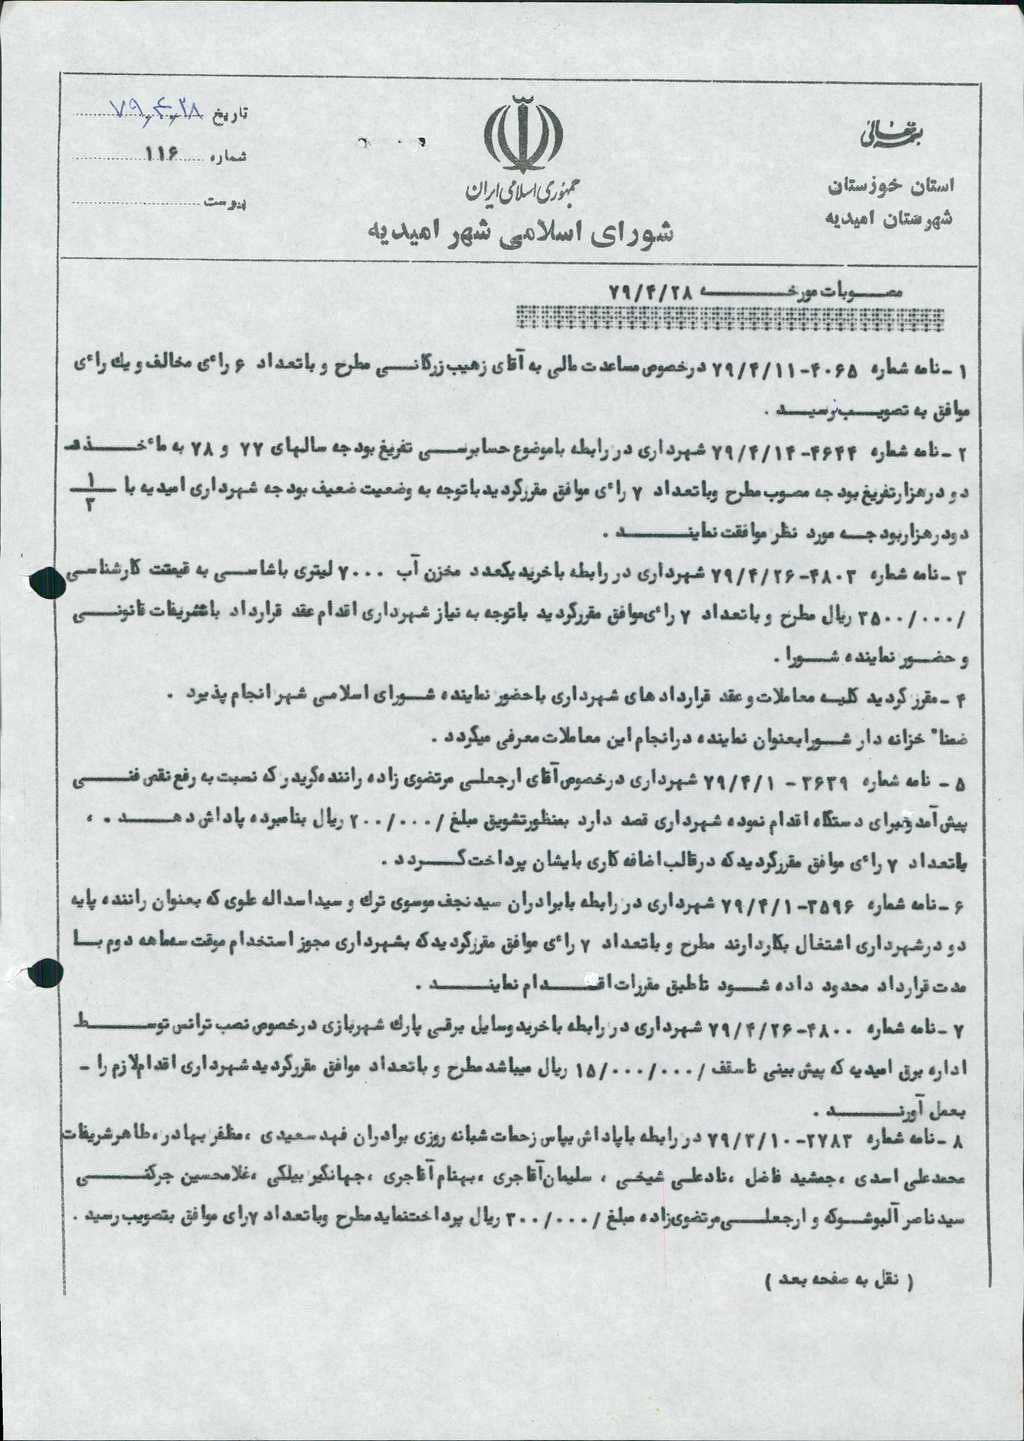 بسمه تعالی
استان خوزستان
شهرستان امیدیه
جمهوری اسلامی ایران
شورای اسلامی شهر امیدیه
تاریخ ۷۹،۴،۲۸
شماره ۱۱۶
پیوست
مصوبات مورخه ۷۹/۴/۲۸
۱- نامه شماره ۴۰۶۵-۷۹/۴/۱۱ در خصوص مساعدت مالی به آقای زهیب زرگانی مطرح و با تعداد ۶ رأی مخالف و یك رأی
موافق به تصویب نرسید .
۲- نامه شماره ۴۶۴۴-۷۹/۴/۱۴ شهرداری در رابطه با موضوع حسابرسی تفریغ بودجه سالهای ۷۷ و ۷۸ به مأخذ
دو در هزار تفریغ بودجه مصوب مطرح و با تعداد ۷ رأی موافق مقرر گردید با توجه به وضعیت ضعیف بودجه شهرداری امیدیه با ۱/۲
دو در هزار بودجه مورد نظر موافقت نمایند .
۳- نامه شماره ۴۸۰۳-۷۹/۴/۲۶ شهرداری در رابطه با خرید یکعدد مخزن آب ۷۰۰۰ لیتری با شاسی به قیمت کارشناسی
/۳۵۰۰/۰۰۰ ریال مطرح و با تعداد ۷ رأی موافق مقرر گردید با توجه به نیاز شهرداری اقدام عقد قرارداد با تشریفات قانونی
و حضور نماینده شورا .
۴- مقرر گردید کلیه معاملات و عقد قراردادهای شهرداری با حضور نماینده شورای اسلامی شهر انجام پذیرد .
ضمنا" خزانه دار شورا بعنوان نماینده در انجام این معاملات معرفی میگردد .
۵- نامه شماره ۳۶۳۹ - ۷۹/۴/۱ شهرداری در خصوص آقای ارجعلی مرتضوی زاده راننده گریدر که نسبت به رفع نقص فنی
پیش آمده برای دستگاه اقدام نموده شهرداری قصد دارد بمنظور تشویق مبلغ /۲۰۰/۰۰۰ ریال بنامبرده پاداش دهد . ،
با تعداد ۷ رأی موافق مقرر گردید که در قالب اضافه کاری بایشان پرداخت گردد .
۶- نامه شماره ۳۵۹۶-۷۹/۴/۱ شهرداری در رابطه با برادران سید نجف موسوی ترك و سید اسداله علوی که بعنوان راننده پایه
دو در شهرداری اشتغال بکار دارند مطرح و با تعداد ۷ رأی موافق مقرر گردید که بشهرداری مجوز استخدام موقت سه ماهه دوم با
مدت قرارداد محدود داده شود تا طبق مقررات اقدام نمایند .
۷- نامه شماره ۴۸۰۰-۷۹/۴/۲۶ شهرداری در رابطه با خرید وسایل برقی پارك شهربازی در خصوص نصب ترانس توسط
اداره برق امیدیه که پیش بینی تا سقف /۱۵/۰۰۰/۰۰۰ ریال میباشد مطرح و با تعداد موافق مقرر گردید شهرداری اقدام لازم را -
بعمل آورند .
۸- نامه شماره ۲۷۸۳-۷۹/۳/۱۰ در رابطه با پاداش بپاس زحمات شبانه روزی برادران فهد سعیدی ، مظفر بهادر ، طاهر شریفات
محمد علی اسدی ، جمشید فاضل ، نادعلی شیخی ، سلیمان آقاجری ، بهنام آقاجری ، جهانگیر بیلکی ، غلامحسین جرکنی
سید ناصر آلبوشوکه و ارجعلی مرتضوی زاده مبلغ /۳۰۰/۰۰۰ ریال پرداخت نماید مطرح و با تعداد ۷ رای موافق بتصویب رسید .
( نقل به صفحه بعد )